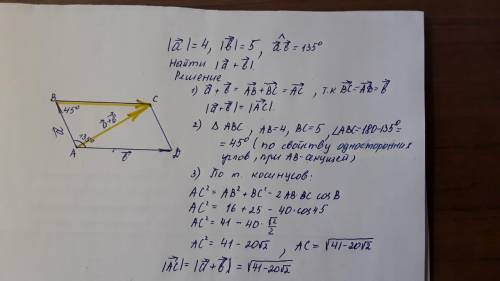 |a⃗|=4, |b⃗|=5, a⃗^b⃗=135°
Найти |a⃗+b⃗|.
Решение
1) a⃗+b⃗=AB⃗+BC⃗=AC⃗, т.к BC⃗=AD⃗=b⃗
|a⃗+b⃗|=|AC⃗|.
2) △ABC, AB=4, BC=5, ∠ABC=180-135°=
=45° (по свойству односторонних
углов, при AB-секущей)
3) По т. косинусов:
AC²=AB²+BC²-2AB·BC cosB
AC²=16+25-40·cos45
AC²=41-40·√2/2
AC²=41-20√2, AC=√(41-20√2)
|AC⃗|=|a⃗+b⃗|=√(41-20√2)
B
C
45°
a⃗
a⃗+b⃗
135°
A
b⃗
D